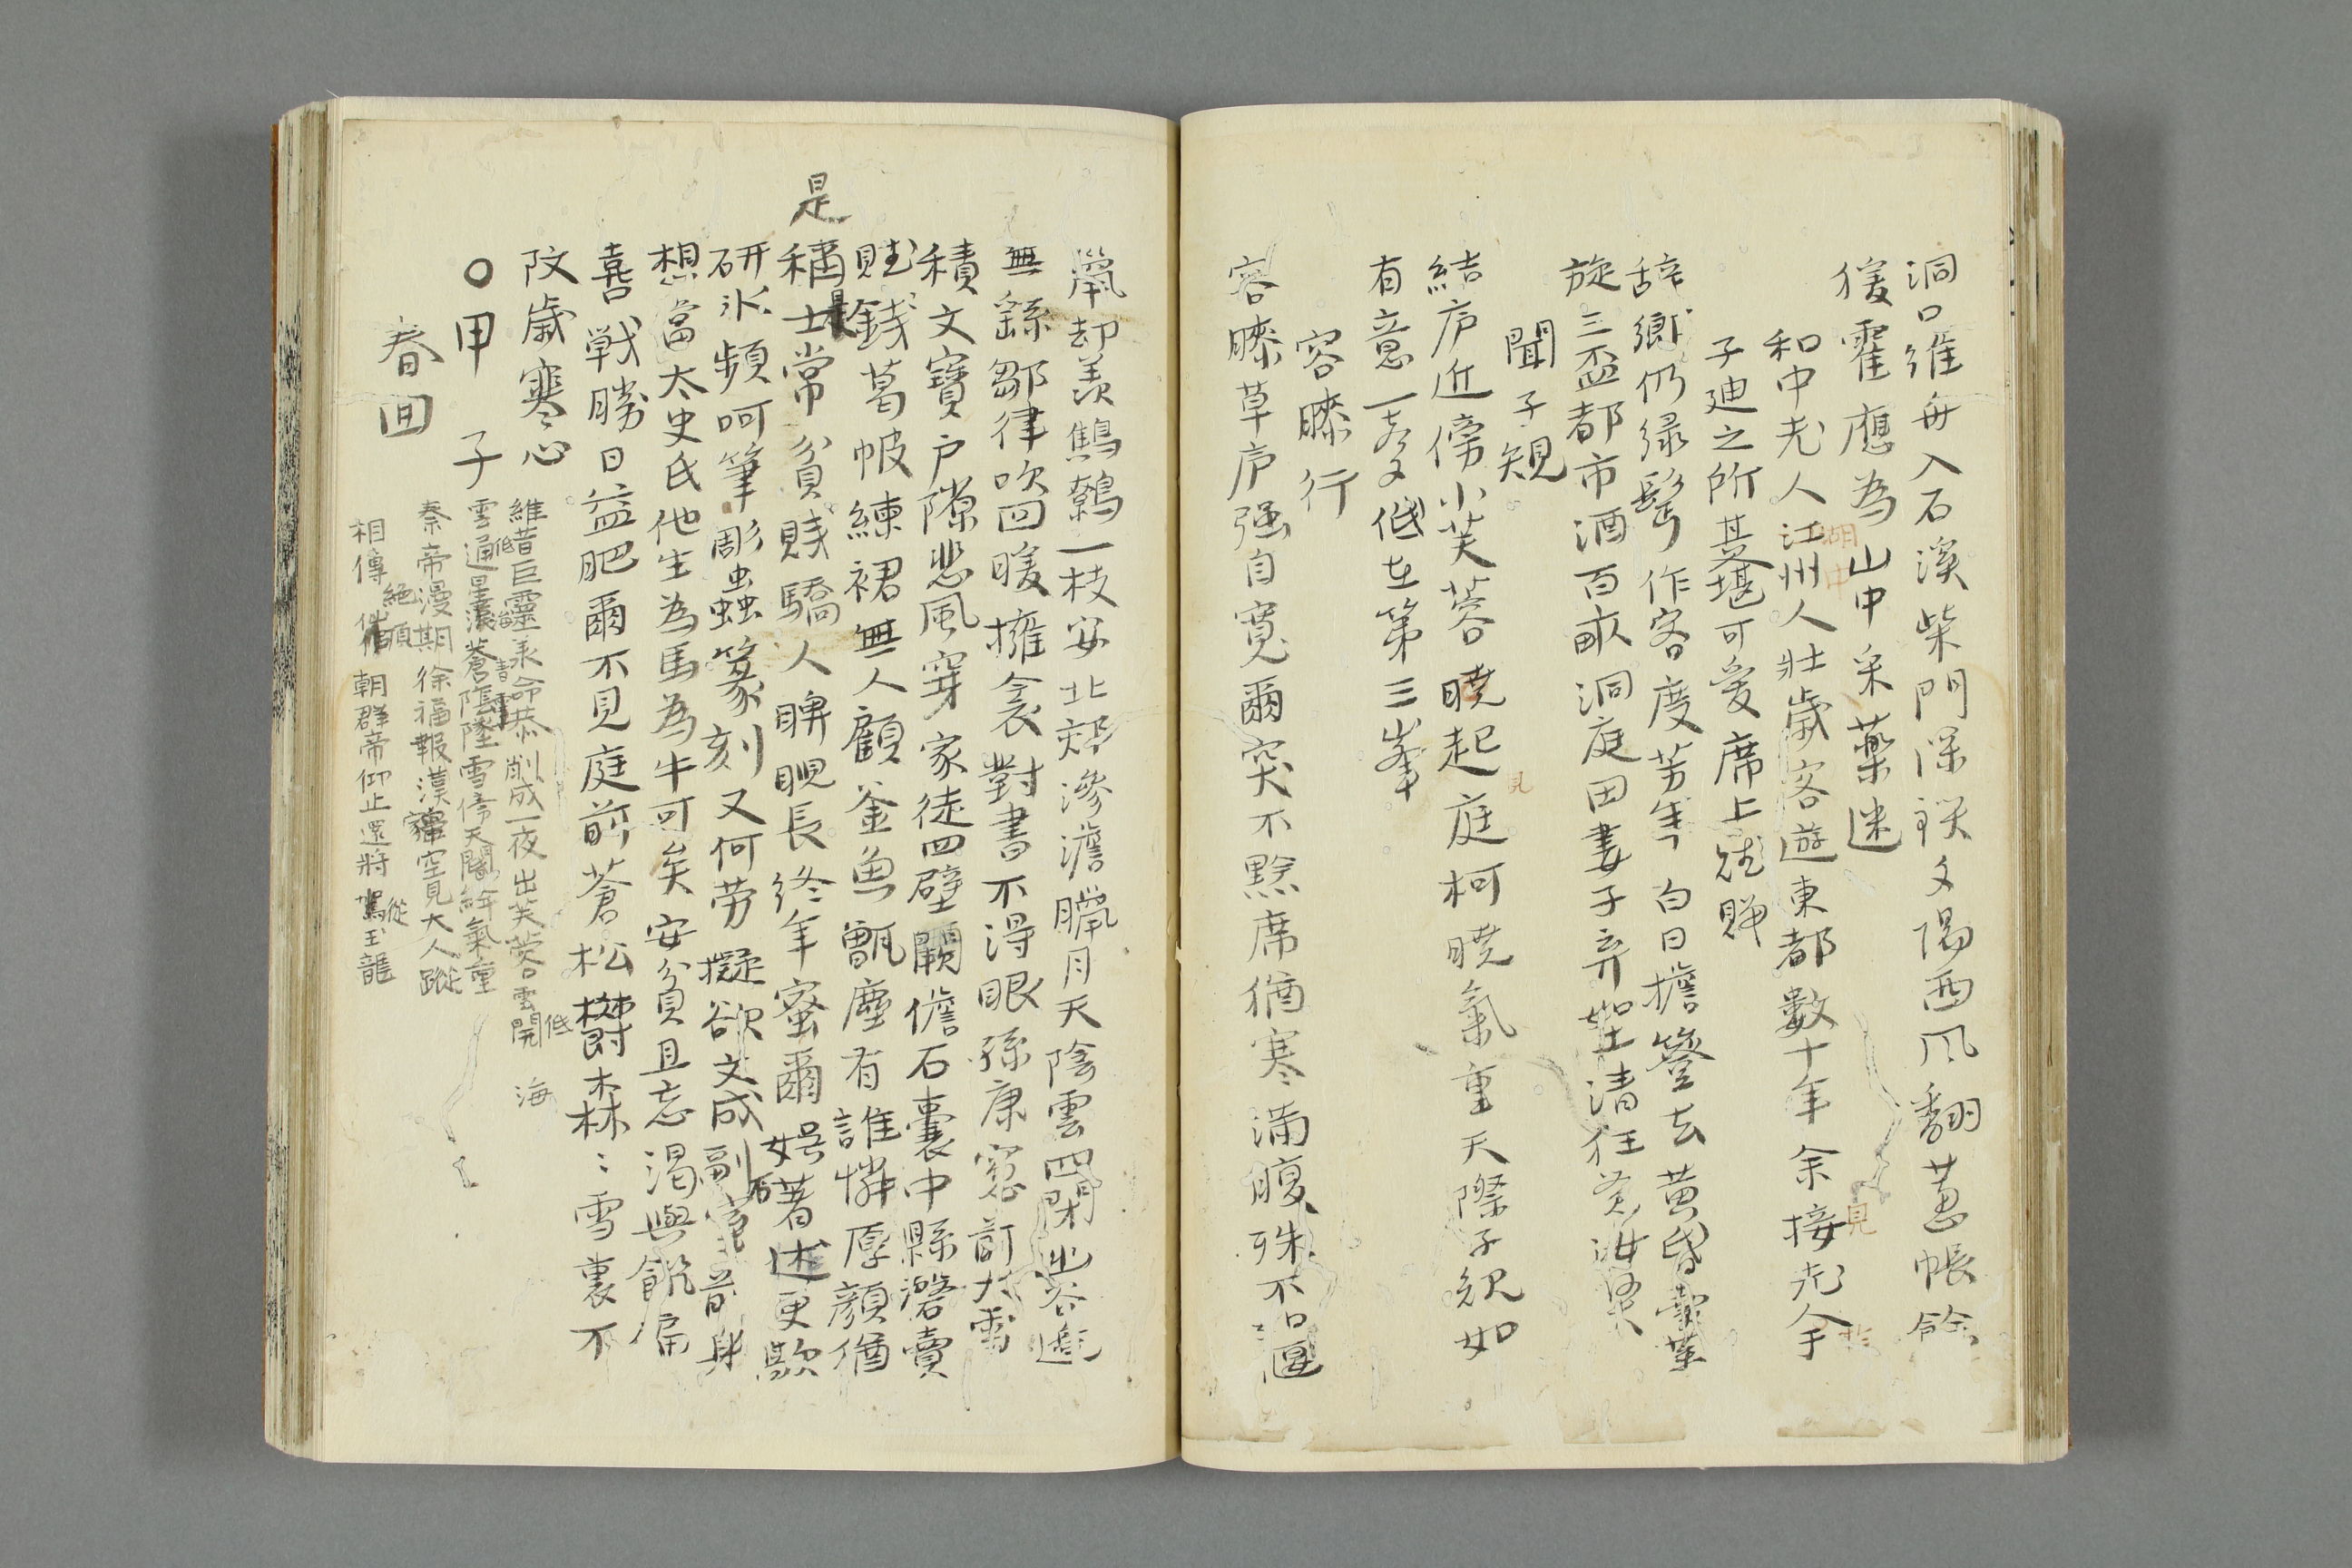 洞口維舟入石溪柴門深鎖夕陽西風翻蕙帳餘
猿霍應為山中采藥迷
和中老人江州人壮歳客遊東都數十年余接老人余
湖中
見
子迪之所甚堪可愛席上賦贈
辞郷仍緑髩作客度芳年白日擔簦去黄昏
旋三盃都市酒百畝洞庭田妻子弃如土清狂
聞子規
結庐近傍小芙蓉曉起庭柯曉氣重天際子規如
見
有意一声低在第三峯
容膝行
容膝草庐强自寛爾突不黔席猶寒滿腹殊不
鼠却羨鷦鷯一枝安北郊滲澹臘月天陰雲四閉出谷遅
無繇鄒律吹回暖擁衾對書不得眼孫康窓前大雪
積文寶戸隙悲風穿家徒四壁闕儋石囊中縣磬賣
賦錢葛帔練裙無人顧釜魚甑塵有誰憐厚顔猶
是
稱士常貧賤驕人睥睨長終年蜜爾娯著述更歎
研氷頻呵筆彫蟲篆刻又何勞擬欲文成副前身
想當太史氏他生為馬為牛可矣安貧且忘渇與飢扁
喜戦勝日益肥爾不見庭前蒼松欝森〻雪裏不
改歳寒心
〇甲子
春回
維昔巨靈承命恭削成一夜出芙蓉雲開 海
低
雲通星蒼陰墜雪傍天闕絳氣重
低
秦帝漫期徐福報漢家空見大人蹤
相傳 絶頂朝群帝仰止還將駕玉龍
從